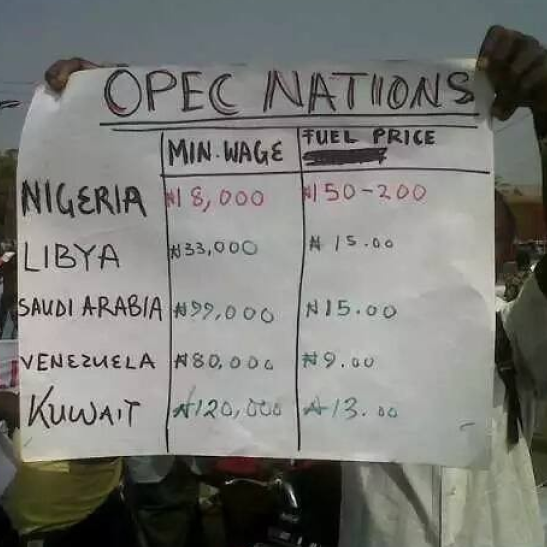 OPEC NATIONS
MIN. WAGE FUEL PRICE
NIGERIA ₦18,000 ₦150-200
LIBYA ₦33,000 ₦15.00
SAUDI ARABIA ₦99,000 ₦15.00
VENEZUELA ₦80,000 ₦9.00
KUWAIT ₦120,000 ₦13.00